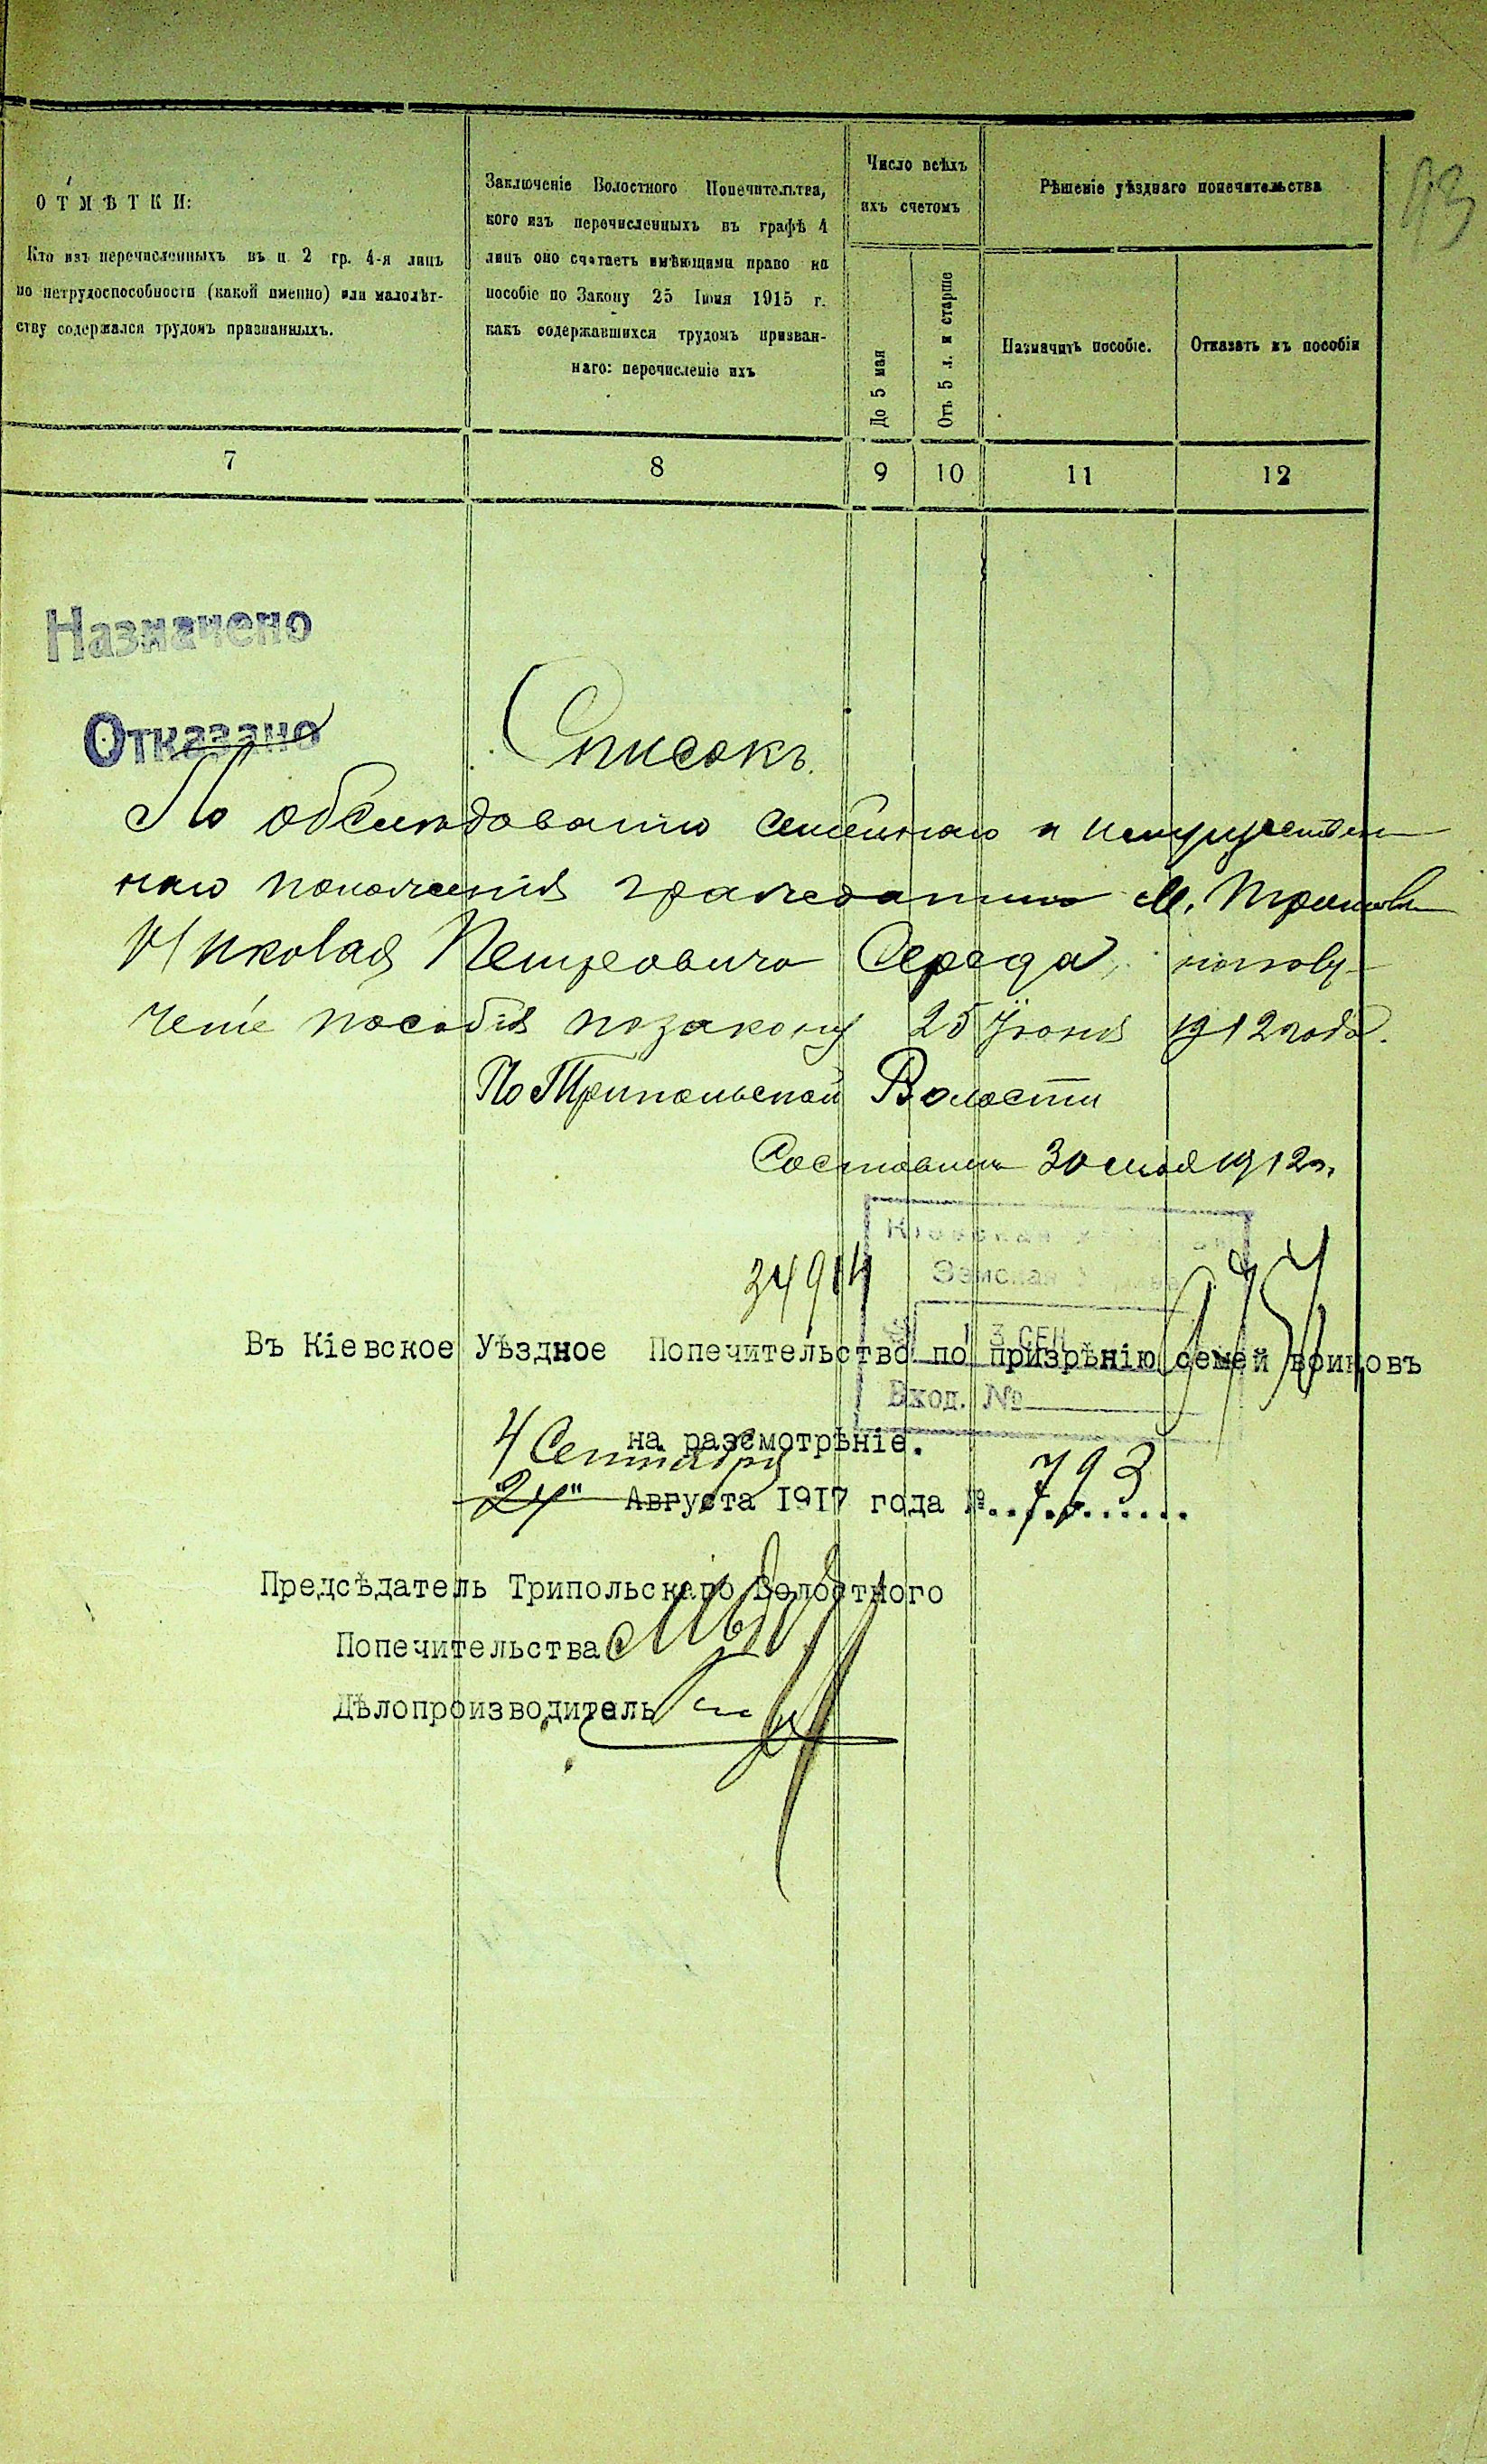 93
ОТМѢТКИ:
Кто изъ перечисленныхъ въ п. 2 гр. 4-я лицъ
по нетрудоспособности (какой именно) или малолѣт-
ству содержался трудомъ призванныхъ.
Заключеніе Волостного Попечительтва,
кого изъ перечисленныхъ въ графѣ 4
лицъ оно считаетъ имѣющими право на
пособіе по Закону 25 Іюня 1915 г.
какъ содержавшихся трудомъ призван-
наго: перечисленіе ихъ
Число всѣхъ
ихъ счетомъ
До 5 мая
Отъ 5 л. и старше
Рѣшеніе уѣзднаго попечительства
Назначить пособіе.
Отказать въ пособіи
7 8 9 10 11 12
Назначено
Отказано
Списокъ.
По обслѣдованію семейнаго и имущуествен
наго положенія гражданина М. Триполья
Николая Петровича Середа, наполу-
ченіе пособія позакону 25 Іюня 1912 года.
По Трипольской Волости
Составленъ 30 мая 1912 г.
Кіевская
Земская Управа
34914
3 СЕН
Въ Кіевское Уѣздное Попечительство по призрѣнію семей воиновъ
Вход. №
на разсмотрѣніе.
4 Сентября
24" Августа 1917 года № 793
Предсѣдатель Трипольскаго Волостного
Попечительства
Дѣлопроизводитель